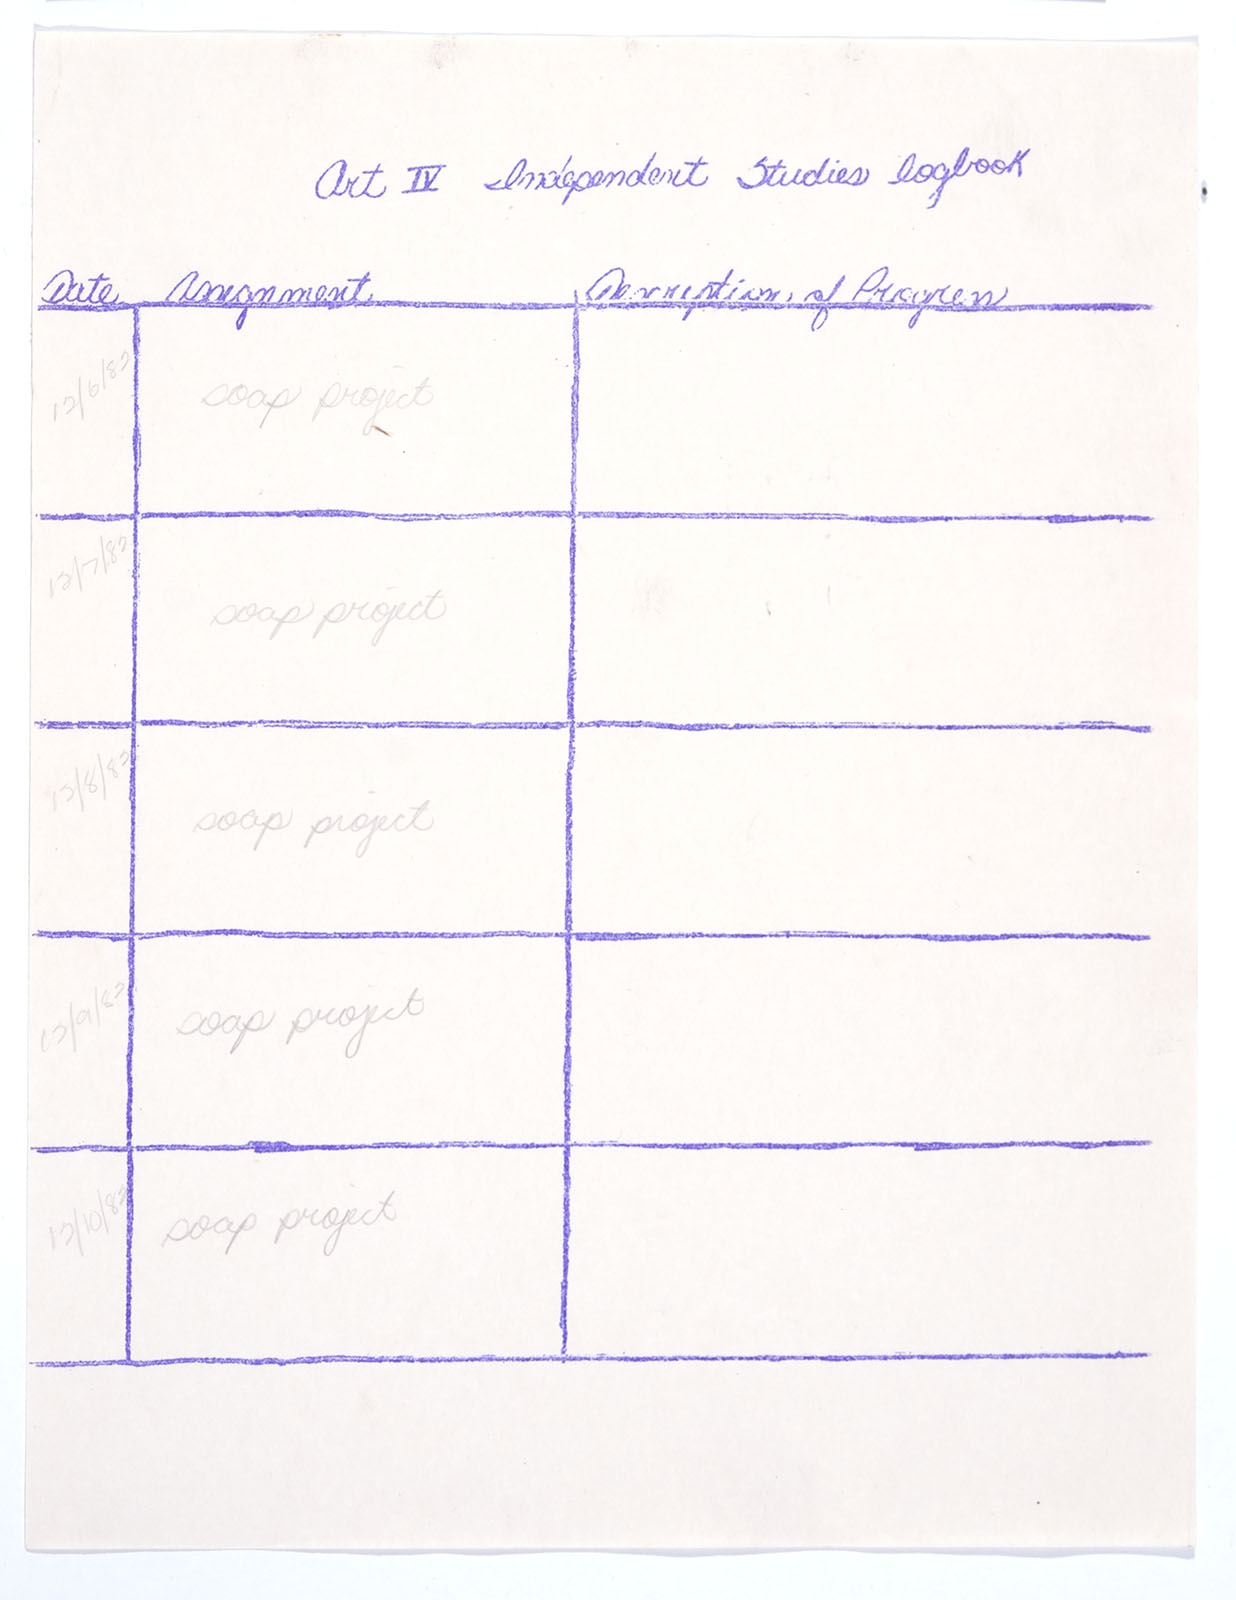 Art IV Independent Studies logbook
Date Assignment Description of Progress
12/6/82 soap project
12/7/82 soap project
12/8/82 soap project
12/9/82 soap project
12/10/82 soap project